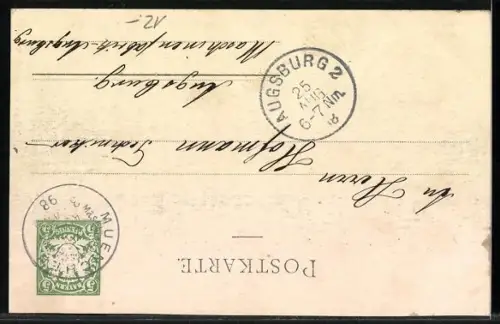 POSTKARTE.
An Herrn
Hofmann Techniker
Augsburg.
Maschinenfabrik-Augsburg
AUGSBURG 2
25
AUG
6-7 Nm.
98
BAYERN
5
-2V